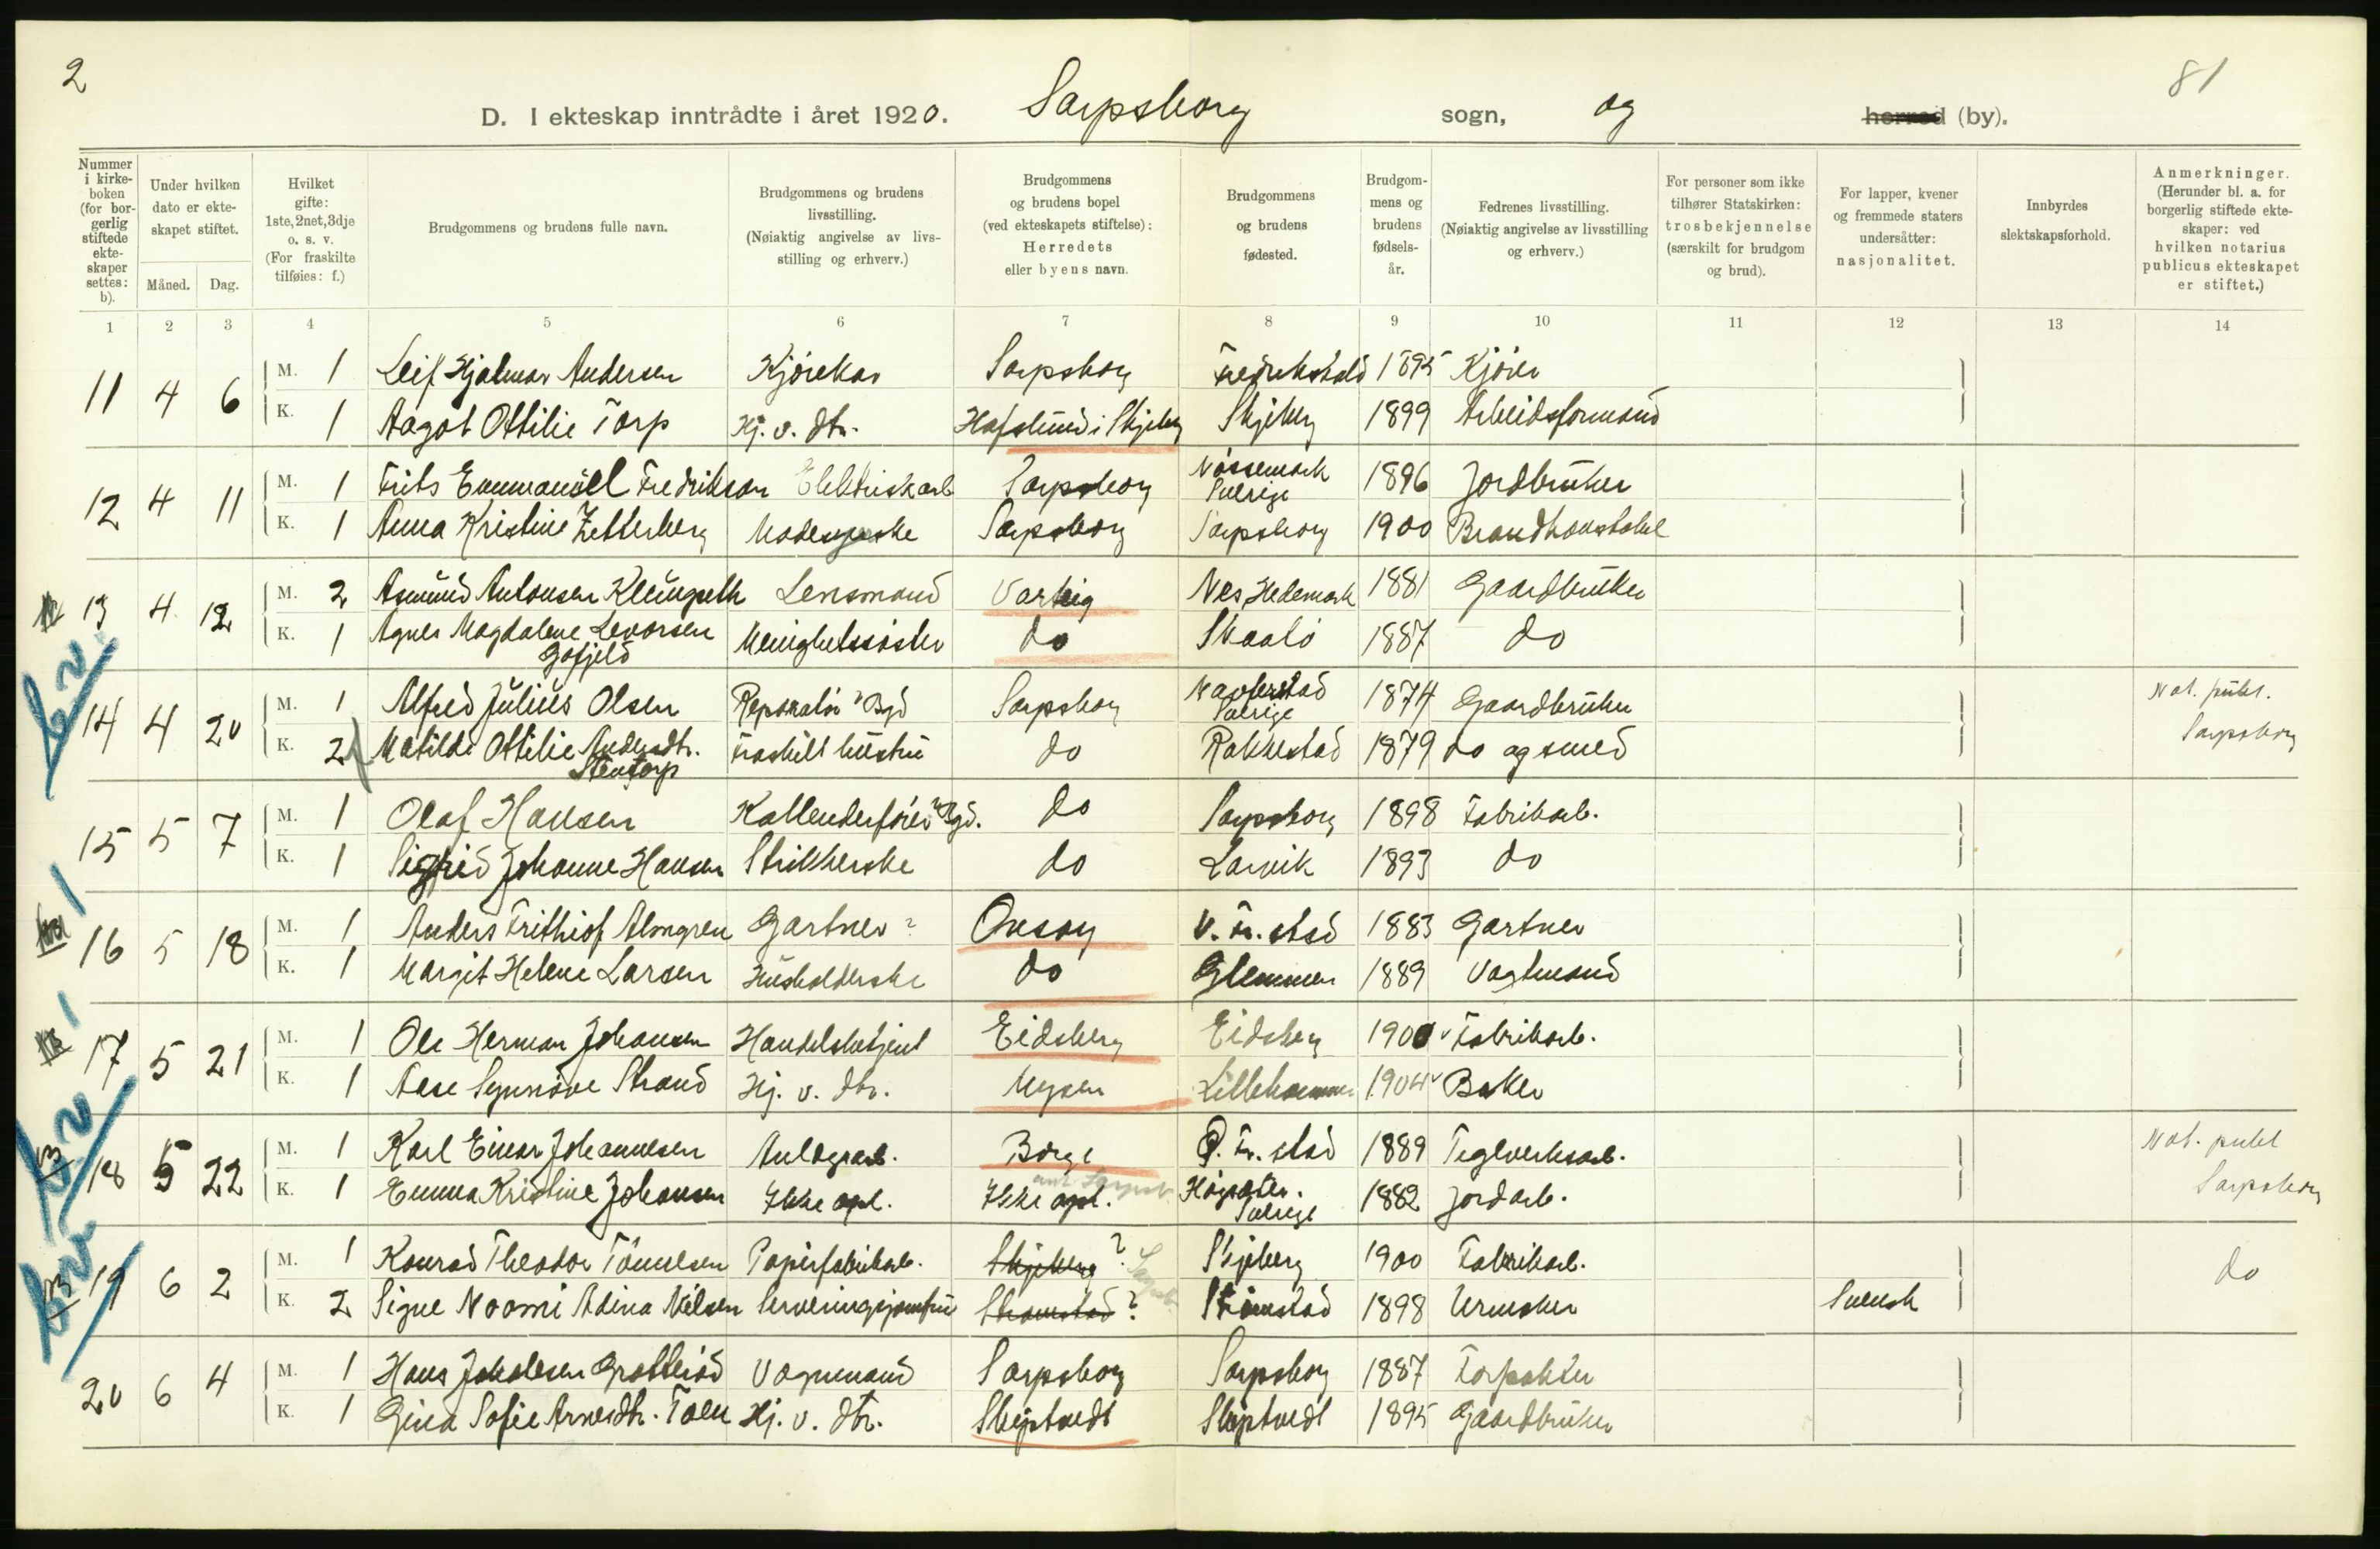 2
81
D. I ekteskap inntrådte i året 1920. Sarpsborg sogn, og herred (by).
Nummer i kirkeboken (for borgerlig stiftede ekteskaper settes: b).
Under hvilken dato er ekteskapet stiftet.
Måned. Dag.
Hvilket gifte: 1ste, 2net, 3dje o. s. v. (For fraskilte tilføies: f.)
Brudgommens og brudens fulle navn.
Brudgommens og brudens livsstilling. (Nøiaktig angivelse av livsstilling og erhverv.)
Brudgommens og brudens bopel (ved ekteskapets stiftelse): Herredets eller byens navn.
Brudgommens og brudens fødested.
Brudgommens og brudens fødselsår.
Fedrenes livsstilling. (Nøiaktig angivelse av livsstilling og erhverv.)
For personer som ikke tilhører Statskirken: trosbekjennelse (særskilt for brudgom og brud).
For lapper, kvener og fremmede staters undersåtter: nasjonalitet.
Innbyrdes slektskapsforhold.
Anmerkninger. (Herunder bl. a. for borgerlig stiftede ekteskaper: ved hvilken notarius publicus ekteskapet er stiftet.)
1 2 3 4 5 6 7 8 9 10 11 12 13 14
11 4 6 M. 1 Leif Hjalmar Andersen Kjørekar Sarpsborg Fredrikstad 1895 Kjører
K. 1 Aagot Ottilie Torp Hj. v. dtr. Hafslund i Skjeberg Skjeberg 1899 Arbeidsformand
12 4 11 M. 1 Frits Emmanuel Fredrikson Elektriskarb Sarpsborg Nössemark Sverige 1896 Jordbruker
K. 1 Anna Kristine Zetterberg Modesyerske Sarpsborg Sarpsborg 1900 Brandkonstabel
13 4 12 M. 2 Asmund Antonsen Lensmand Varteig Nes Hedemark 1881 Gaardbruker
K. 1 Agnes Magdalene Levorsen Gofjeld Menighetssöster do Skaatö 1887 do
14 4 20 M. 1 Alfred Julius Olsen Reparatör Sarpsborg Naverstad Sverige 1874 Gaardbruker Not. publ.
K. 2 Matilde Ottilie Andersdtr. Stentorp fraskilt hustru do Rakkestad 1879 do og smed Sarpsborg
15 5 7 M. 1 Olaf Hansen do Sarpsborg 1898 Fabrikarb.
K. 1 Sigfrid Johanne Hansen Strikkerske do Larvik 1893 do
16 5 18 M. 1 Anders Frithiof Almgren Gartner ? Onsøy V. Fr. stad 1883 Gartner
K. 1 Margit Helene Larsen Husholderske do Glemmen 1889 Vagtmand
17 5 21 M. 1 Ole Herman Johansen Handelsbetjent Eidsberg Eidsberg 1900 Fabrikarb.
K. 1 Aase Synnöve Strand Hj. v. dtr. Mysen Lillehammer 1904 Baker
18 5 22 M. 1 Karl Einar Johannesen Anlægsarb. Borge Ø. Fr. stad 1889 Teglverksarb. Not. publ
K. 1 Emma Kristine Johansen Ikke opl. Ikke opl. Sverige 1882 Jordarb. Sarpsborg
19 6 2 M. 1 Konrad Theodor Tönnesen Papirfabrikarb. Skjeberg ? Skjeberg 1900 Fabrikarb. do
K. 2 Signe Noomi Adina Nilsen Serveringsjomfru Strömstad ? Strömstad 1898 Urmaker Svensk
20 6 4 M. 1 Hans Johalesen Vognmand Sarpsborg Sarpsborg 1887 Forpakter
K. 1 Gina Sofie Arnesdtr. Toen Hj. v. dtr. Skiptvedt Skiptvedt 1895 Gaardbruker